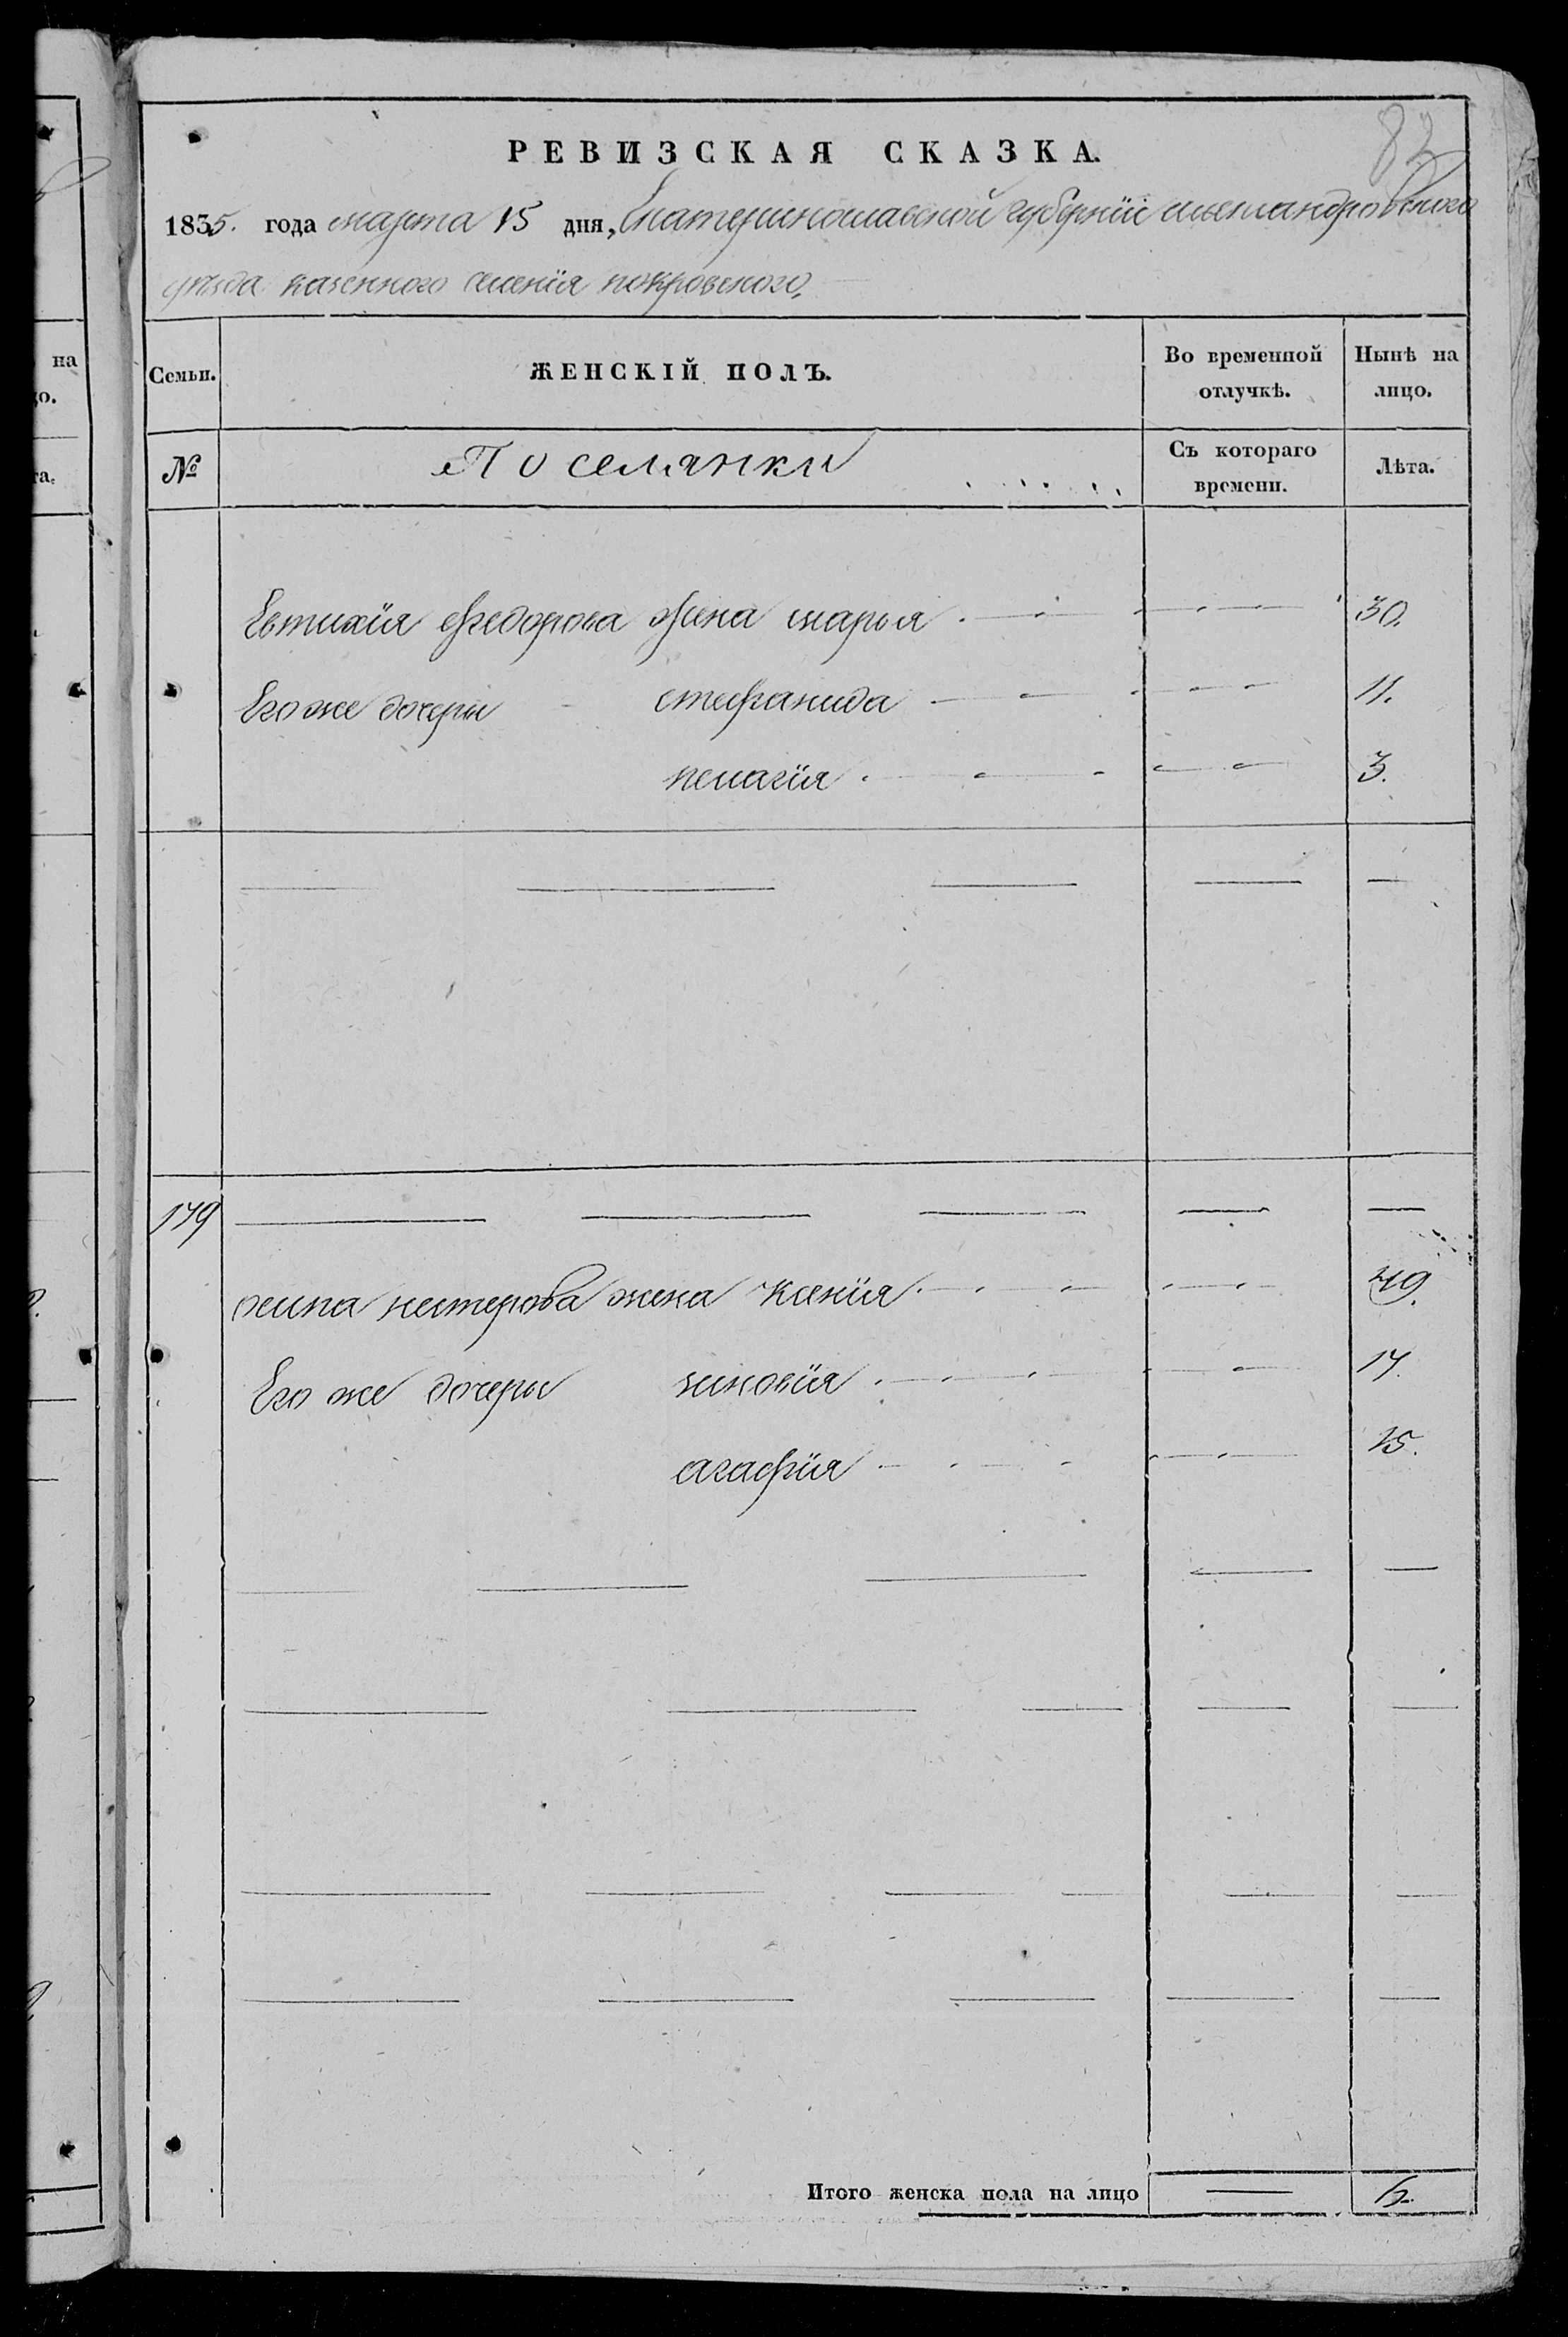 82
РЕВИЗСКАЯ СКАЗКА.
1835. года марта 15 дня, Екатеринославской губерніи александровского
уѣзда казенного селенія покровского,
Семьи. ЖЕНСКІЙ ПОЛЪ. Во временной отлучкѣ. Нынѣ на лицо.
№ Поселянки Съ котораго времени. Лѣта.
Евтихія Федорова жена марья 30.
Его же дочери стефанида 11.
пелагія 3.
179
осипа нестерова жена Ксенія 49.
Его же дочери зиновія 17.
агафія 15.
Итого женска пола на лицо 6.
на
цо.
та.